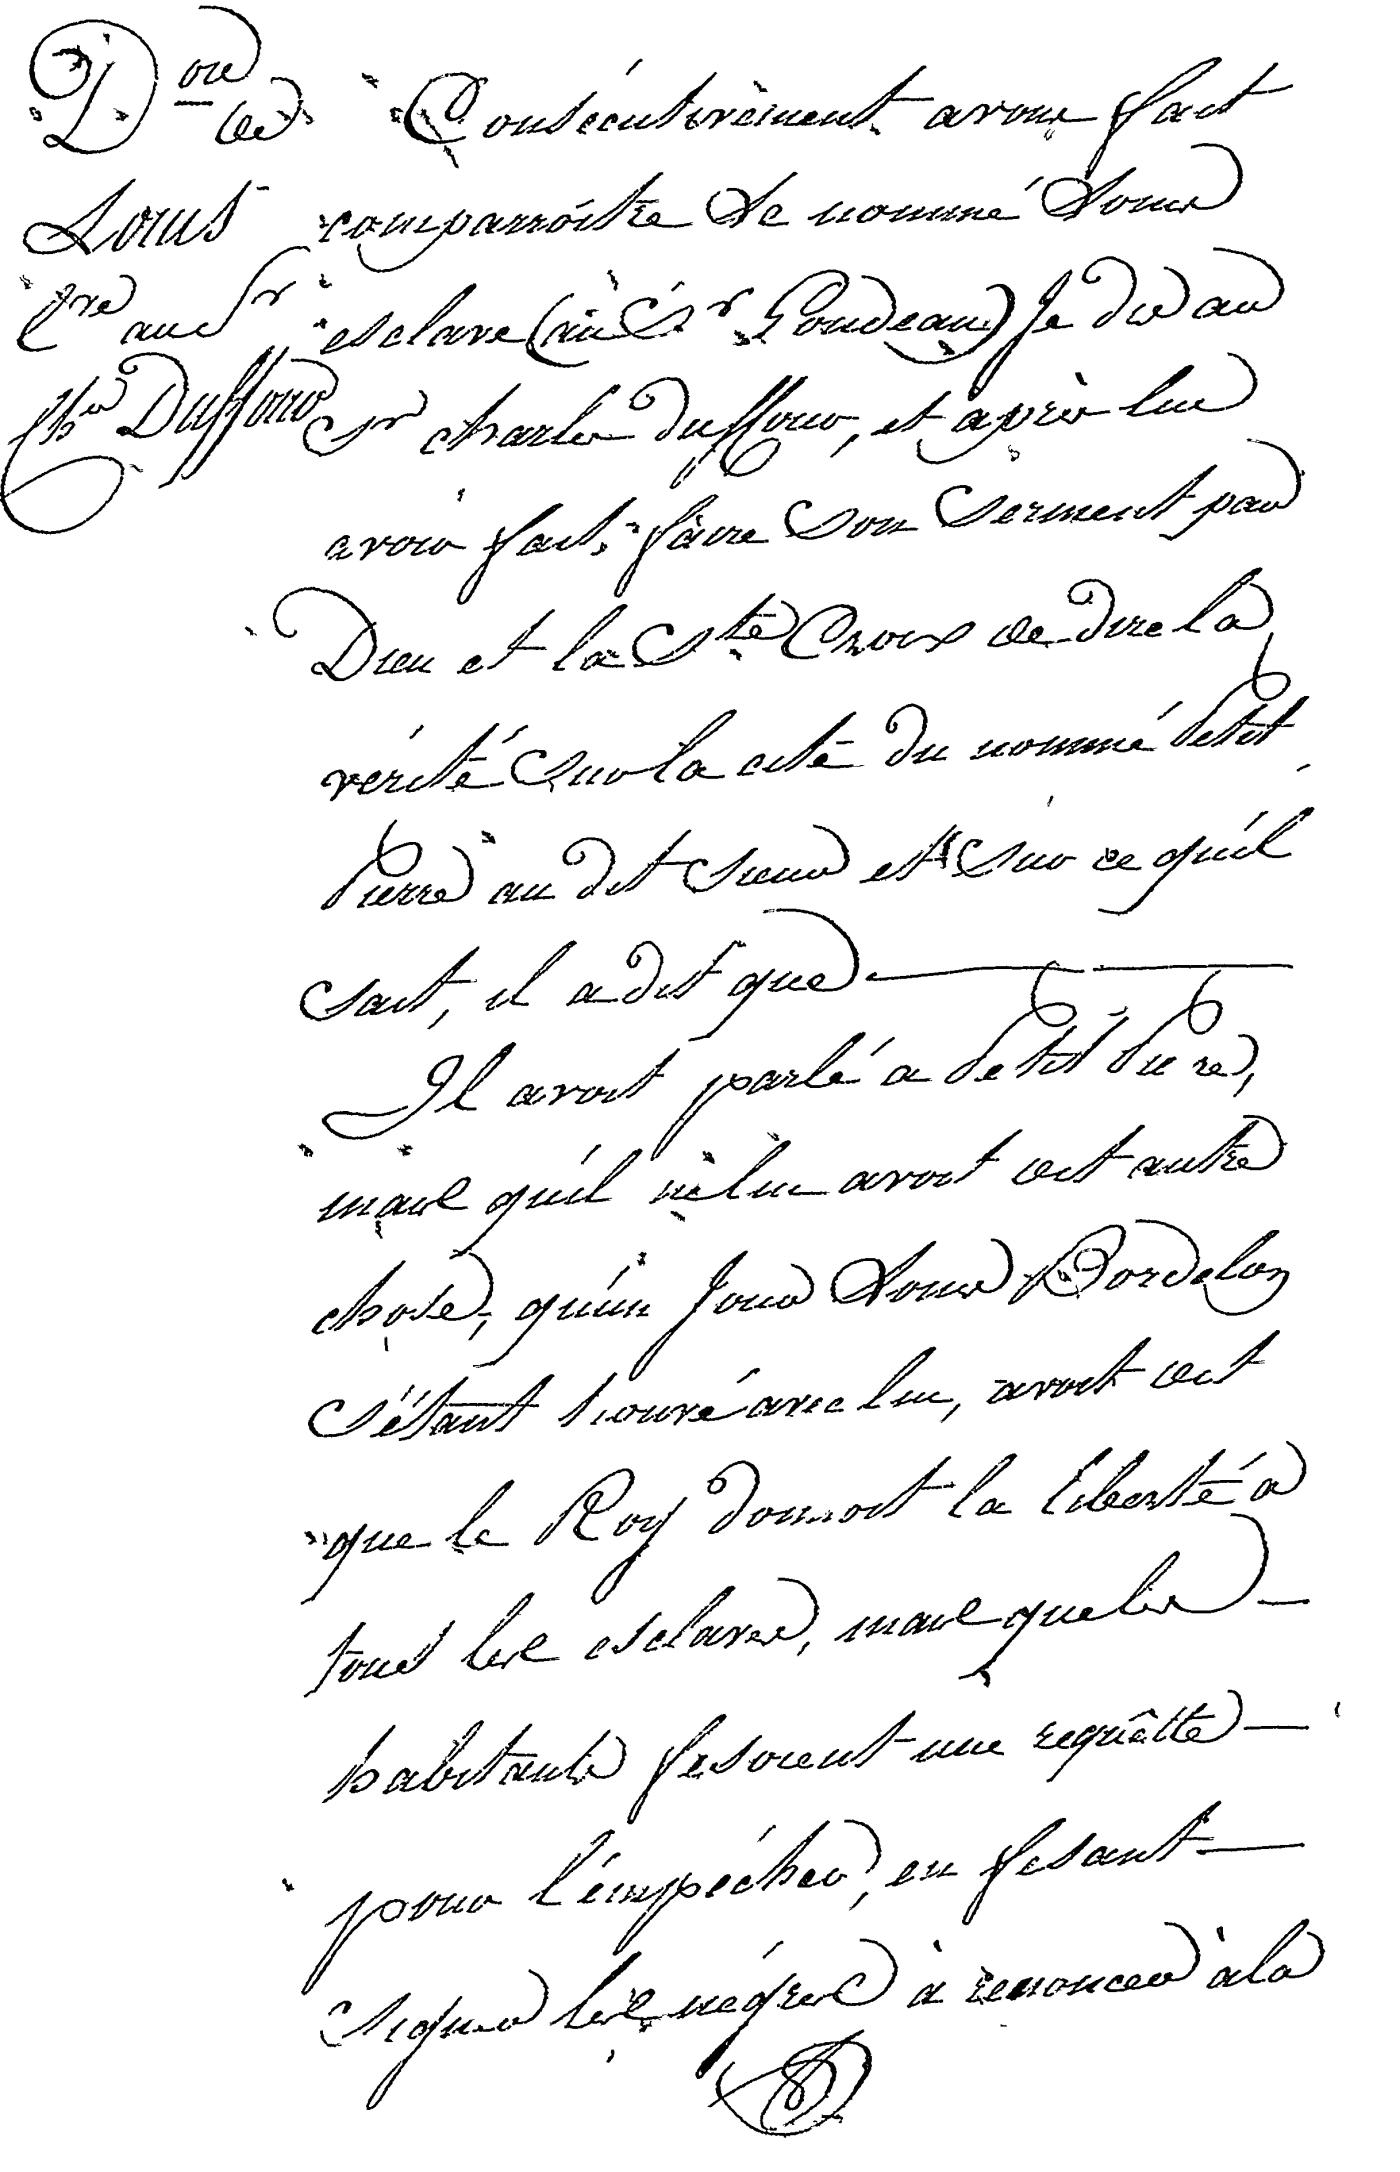 Don
de
Louis
N.re au Sr
Ch.s Duffour
Consécutivement avons fait
comparroitre le nommé Louis
esclave (au Sr Goudeau) Je dis au
Sr charles duffour, et après lui
avoir fait faire son serment par
Dieu et la Ste Croix de dire la
vérité sur la cité du nommé Petit
Pierre au dit Sieur et sur ce qu'il
sait, il a dit que
Il avoit parlé a Petit Pierre,
mais qu'il ne lui avoit dit autre
chose, qu'un Jour Louis Bordelon
s'étant trouvé avec lui, avoit dit
que le Roy donnoit la liberté a
tous les esclaves, mais que les
habitants fesoient une requêtte
pour l'empécher, en fesant
signer les négres à renoncer à la